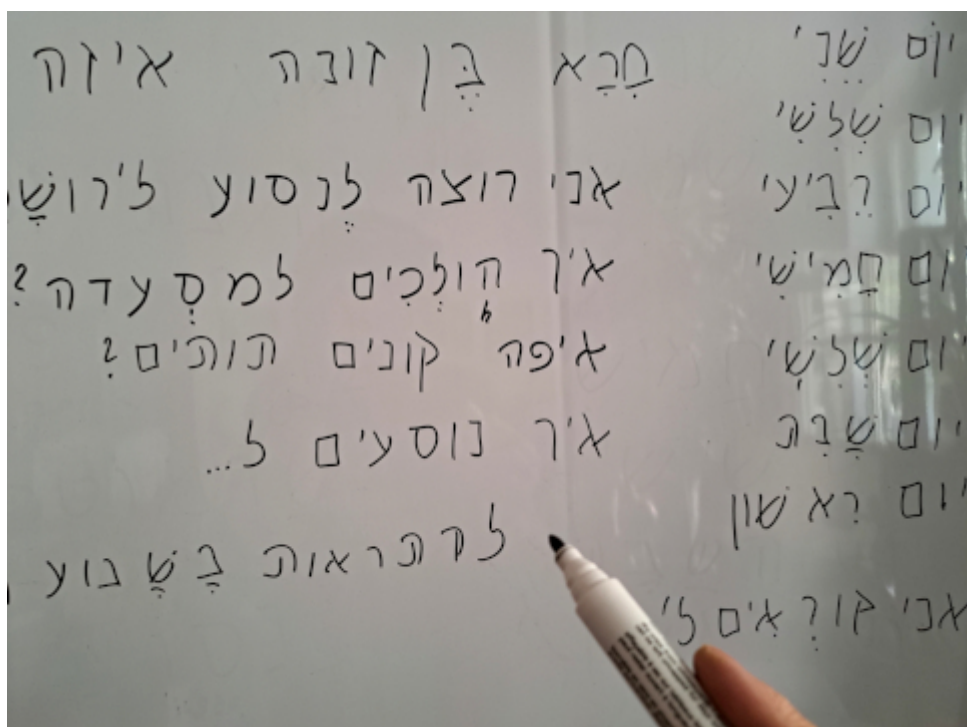 יוֹם שֵׁנִי
יום שְׁלִשִׁי
יום רְבִיעִי
יום חֲמִישִׁי
יום שְׁלִשִׁי
יום שַׁבָּת
יום רִאשון
אני קוֹרְאִים לי
חָרָא בֶּן זונה איזה
אני רוצה לִנסוע
איך הוֹלְכִים למִסְעדה?
איפה קונים תותים?
איך נוסעים ל...